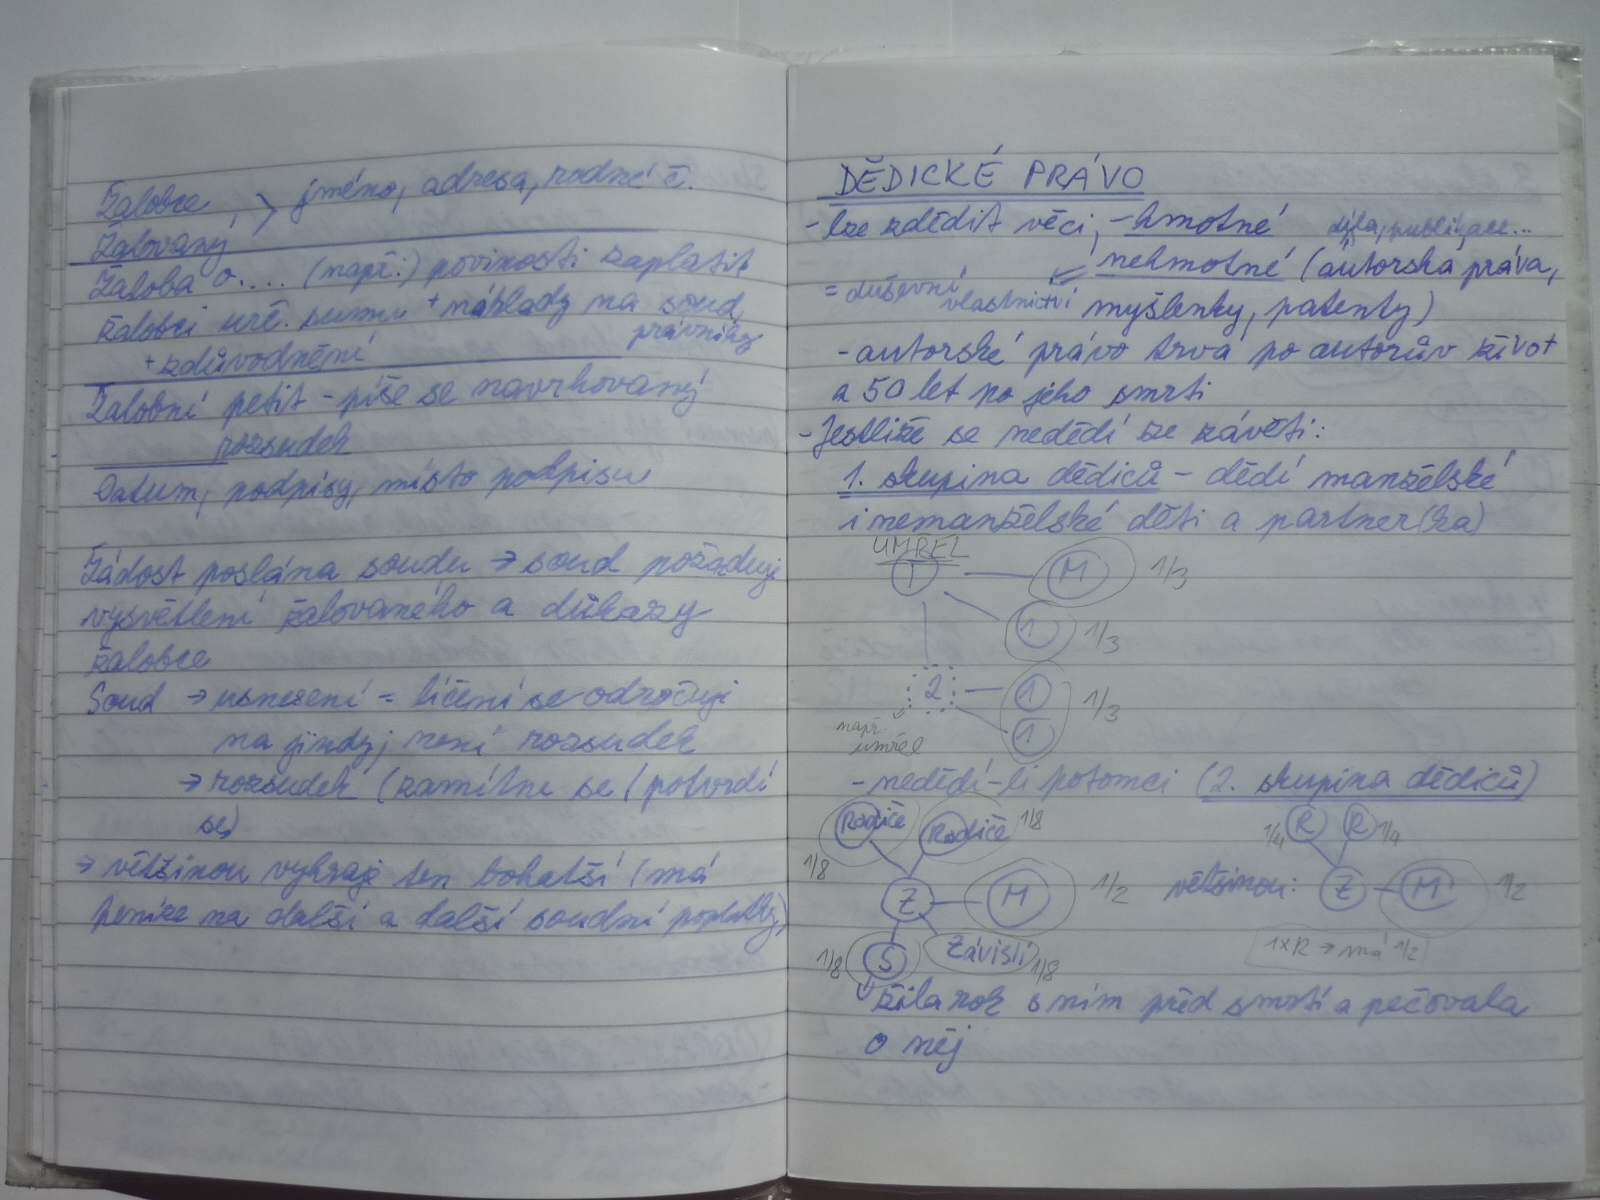 Žalobce
Žalovaný > jméno, adresa, rodné č.
Žaloba o.... (např.:) povinosti zaplatit
žalobci urč. sumu + náklady na soud,
právníky
+ zdůvodnění
Žalobní petit - píše se navrhovaný
rozsudek
Datum, podpisy, místo podpisu
Žádost poslána soudu → soud požaduje
vysvětlení žalovaného a důkazy
žalobce
Soud → usnesení = líčení se odročuji
na jindy, není rozsudek
→ rozsudek (zamítne se / potvrdí
se)
→ většinou vyhraje ten bohatší (má
peníze na další a další soudní poplatky)
DĚDICKÉ PRÁVO
- lze zdědit věci, - hmotné
díla, publikace...
nehmotné (autorska práva,
= duševní
vlastnictví
myšlenky, patenty)
- autorské právo trvá po autorův život
a 50 let po jeho smrti
- Jestliže se nedědí ze závěti:
1. skupina dědiců - dědí manželské
i nemanželské děti a partner(ka)
UMŘEL
1 M 1/3
1 1/3
2 1
1 1/3
např.
umřel
- nedědí-li potomci (2. skupina dědiců)
Rodiče Rodiče 1/8
1/8
Z M 1/2
S Závislí
1/8 1/8
1/4 R R 1/4
většinou: Z M 1/2
1xR → má 1/2
žila rok s ním před smrtí a pečovala
o něj